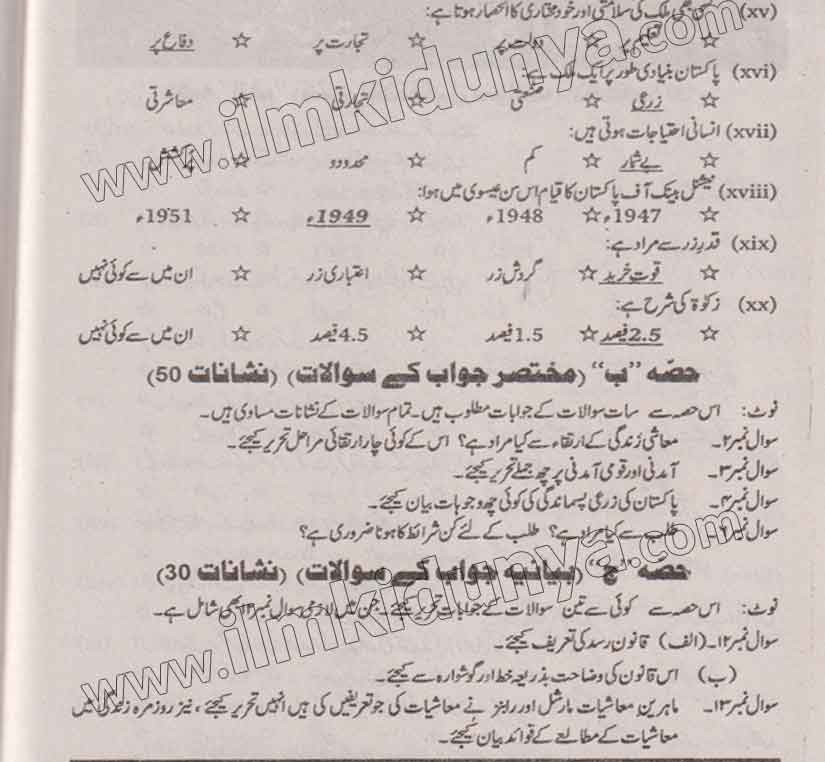 (xv) کسی بھی ملک کی سلامتی اور خود مختاری کا انحصار ہوتا ہے:
☆ ☆ دولت پر ☆ تجارت پر ☆ دفاع پر
(xvi) پاکستان بنیادی طور پر ایک ملک ہے:
☆ زرعی ☆ صنعتی ☆ تجارتی ☆ معاشرتی
(xvii) انسانی احتیاجات ہوتی ہیں:
☆ بے شمار ☆ کم ☆ محدود ☆ پُرکشش
(xviii) نیشنل بینک آف پاکستان کا قیام اس سن عیسوی میں ہوا:
☆ 1947ء ☆ 1948ء ☆ 1949ء ☆ 1951ء
(xix) قدر زر سے مراد ہے:
☆ قوت خرید ☆ گردش زر ☆ اعتباری زر ☆ ان میں سے کوئی نہیں
(xx) زکوٰۃ کی شرح ہے:
☆ 2.5 فیصد ☆ 1.5 فیصد ☆ 4.5 فیصد ☆ ان میں سے کوئی نہیں
حصّہ "ب" (مختصر جواب کے سوالات) (نشانات 50)
نوٹ: اس حصہ سے سات سوالات کے جوابات مطلوب ہیں۔ تمام سوالات کے نشانات مساوی ہیں۔
سوال نمبر ۲۔ معاشی زندگی کے ارتقاء سے کیا مراد ہے؟ اس کے کوئی چار ارتقائی مراحل تحریر کیجئے۔
سوال نمبر ۳۔ آمدنی اور قومی آمدنی پر چھ جملے تحریر کیجئے۔
سوال نمبر ۴۔ پاکستان کی زرعی پسماندگی کی کوئی چھ وجوہات بیان کیجئے۔
سوال نمبر ۶۔ طلب سے کیا مراد ہے؟ طلب کے لئے کن شرائط کا ہونا ضروری ہے؟
حصہ "ج" (بیانیہ جواب کے سوالات) (نشانات 30)
نوٹ: اس حصہ سے کوئی سے تین سوالات کے جوابات تحریر کیجئے۔ جن میں لازمی سوال نمبر ۱۴ بھی شامل ہے۔
سوال نمبر ۱۲۔ (الف) قانون رسد کی تعریف کیجئے۔
(ب) اس قانون کی وضاحت بذریعہ خط اور گوشوارہ سے کیجئے۔
سوال نمبر ۱۳۔ ماہرین معاشیات مارشل اور رابنز نے معاشیات کی جو تعریفیں کی ہیں انہیں تحریر کیجئے، نیز روزمرہ زندگی میں
معاشیات کے مطالعے کے فوائد بیان کیجئے۔
www.ilmkidunya.com
www.ilmkidunya.com